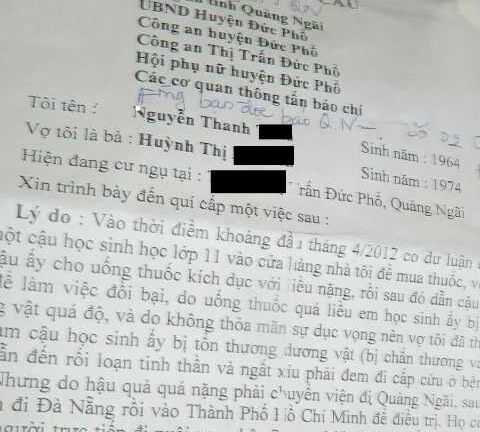 tỉnh Quảng Ngãi
UBND Huyện Đức Phổ
Công an huyện Đức Phổ
Công an Thị Trấn Đức Phổ
Hội phụ nữ huyện Đức Phổ
Các cơ quan thông tấn báo chí
bạn đọc báo Q N
Tôi tên : Nguyễn Thanh Sinh năm : 1964
Vợ tôi là bà : Huỳnh Thị Sinh năm : 1974
Hiện đang cư ngụ tại : rấn Đức Phổ, Quảng Ngãi
Xin trình bày đến quí cấp một việc sau :
Lý do : Vào thời điểm khoảng đầu tháng 4/2012 có dư luận
một cậu học sinh học lớp 11 vào cửa hàng nhà tôi để mua thuốc, v
ậu ấy cho uống thuốc kích dục với liều nặng, rồi sau đó dẫn cậu
để làm việc đồi bại, do uống thuốc quá liều em học sinh ấy bị
g vật quá độ, và do không thỏa mãn sự dục vọng nên vợ tôi đã th
àm cậu học sinh ấy bị tổn thương dương vật (bị chấn thương v
ẫn đến rối loạn tinh thần và ngất xỉu phải đem đi cấp cứu ở bện
Nhưng do hậu quả quá nặng phải chuyển viện đi Quảng Ngãi, sau
đi Đà Nẵng rồi vào Thành Phố Hồ Chí Minh để điều trị. Họ cò
người trực tiếp đi